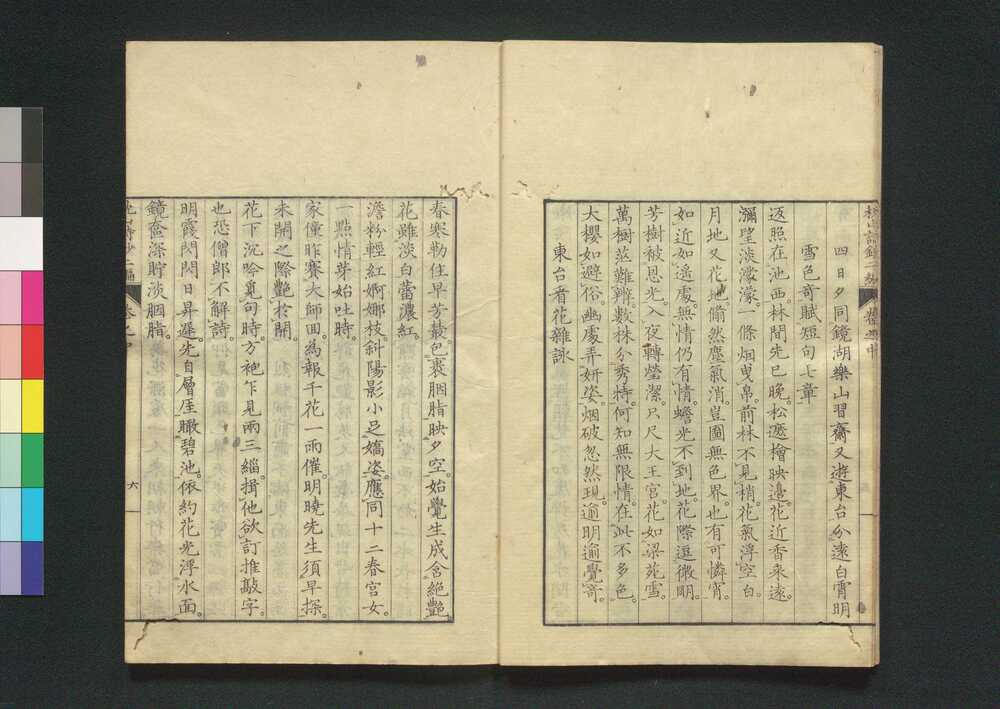 四日夕同鏡湖樂山習齋又遊東台分遠白霄明
雪色奇賦短句七章
返照在池西。林間先已晚。松遮檜映邊。花近香来遠。
瀰望淡濛濛。一條烟曳帛。前林不見梢。花氣浮空白。
月地又花地。翛然塵氣消。豈圖無色界。也有可憐宵。
如近如遥處。無情仍有情。蟾光不到地。花際逗微明。
芳樹被恩光。入夜轉瑩潔。尺尺大王宮。花如梁苑雪。
萬樹蒸難辨。數株分秀特。何知無限情。在此不多色。
大櫻如避俗。幽處弄妍姿。烟破忽然現。逾明逾覺奇。
東台看花雜詠
春寒勒住早芳叢。包裹胭脂映夕空。始覺生成含絶艷。
花雖淡白蕾濃紅。
澹粉輕紅婀娜枝。斜陽影小足嬌姿。應同十二春宮女。
一點情芽始吐時。
家僮昨賽大師回。為報千花一雨催。明曉先生須早探。
未開之際艷於開。
花下沉唫覓句時。方袍乍見兩三緇。揖他欲訂推敲字。
也恐僧郎不解詩。
明霞閃閃日昇遲。先自層厓瞰碧池。依約花光浮水面。
鏡奩深貯淡胭脂。
六